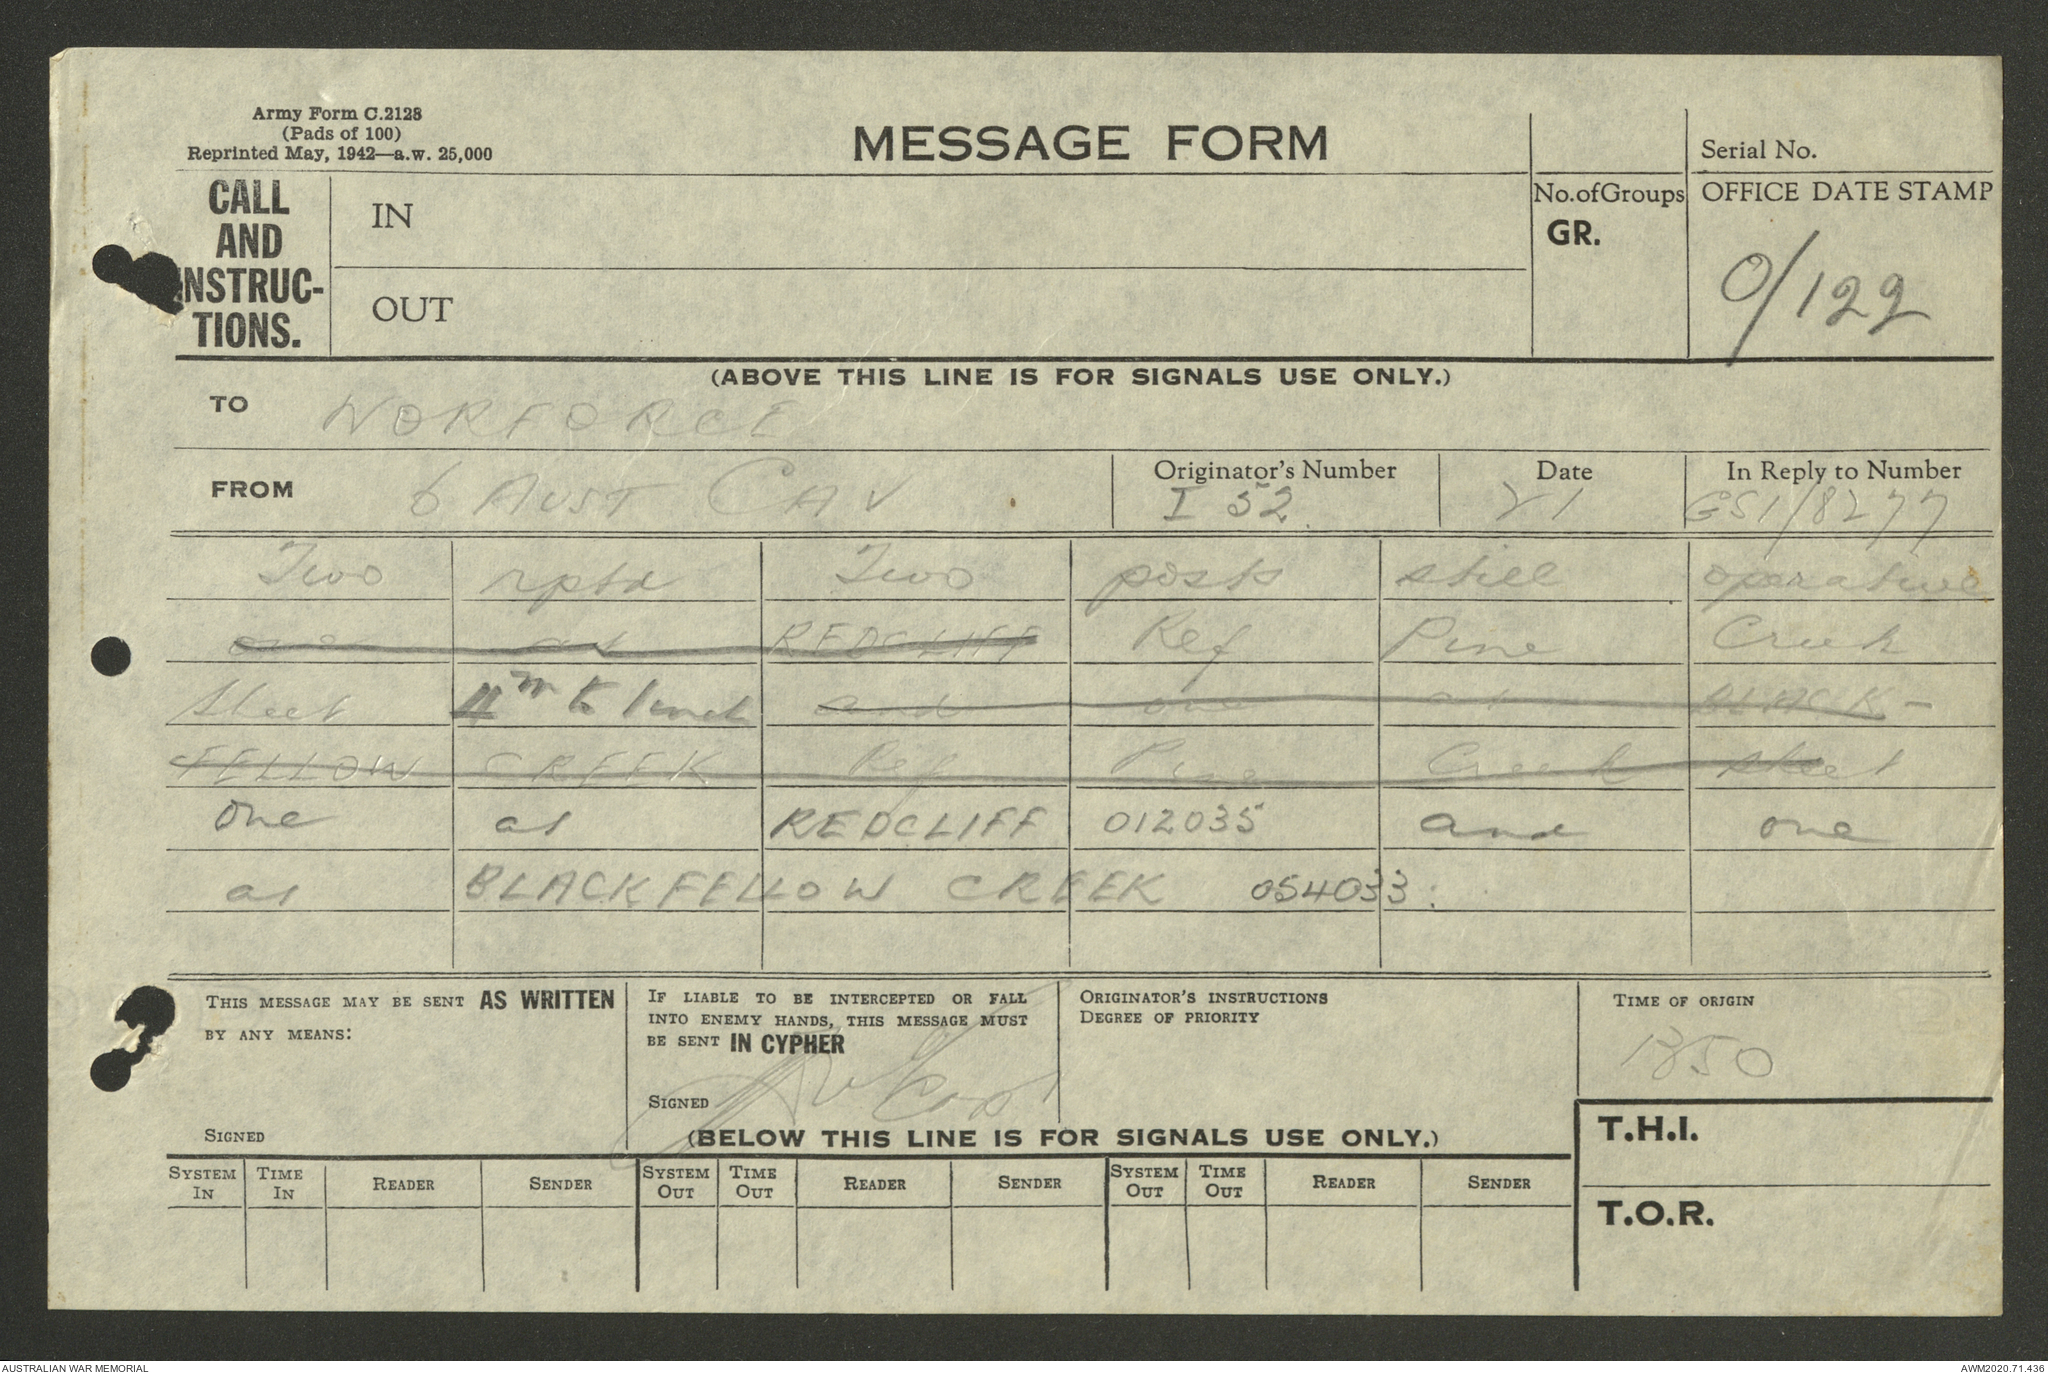 Army Form C.2128
(Pads of 100)
Reprinted May, 1942—a.w. 25,000
MESSAGE FORM
Serial No.
CALL
AND
INSTRUC-
TIONS.
IN
OUT
No. of Groups
GR.
OFFICE DATE STAMP
0/122
(ABOVE THIS LINE IS FOR SIGNALS USE ONLY.)
TO NORFORCE
FROM 6 AUST CAV
Originator's Number
I 52
Date
21
In Reply to Number
GS1/8277
Two rptd Two posts still operative
one at REDCLIFF Ref Pine Creek
sheet 4m to 1 inch and one at BLACK-
FELLOW CREEK Ref Pine Creek sheet
one at REDCLIFF 012035 and one
at BLACKFELLOW CREEK 054033 :
THIS MESSAGE MAY BE SENT AS WRITTEN
BY ANY MEANS:
SIGNED
IF LIABLE TO BE INTERCEPTED OR FALL
INTO ENEMY HANDS, THIS MESSAGE MUST
BE SENT IN CYPHER
SIGNED
Capt
ORIGINATOR'S INSTRUCTIONS
DEGREE OF PRIORITY
TIME OF ORIGIN
1850
(BELOW THIS LINE IS FOR SIGNALS USE ONLY.)
T.H.I.
T.O.R.
SYSTEM IN TIME IN READER SENDER SYSTEM OUT TIME OUT READER SENDER SYSTEM OUT TIME OUT READER SENDER
AUSTRALIAN WAR MEMORIAL
AWM2020.71.436